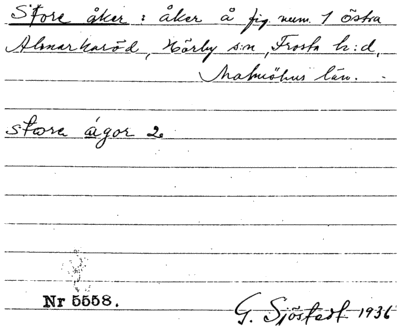 Store åker : åker å fig. num. 1 östra
Almarkaröd, Hörby s:n, Frosta h:d,
Malmöhus län.
store ågor 2.
Nr 5558.
G. Sjöstedt 1936